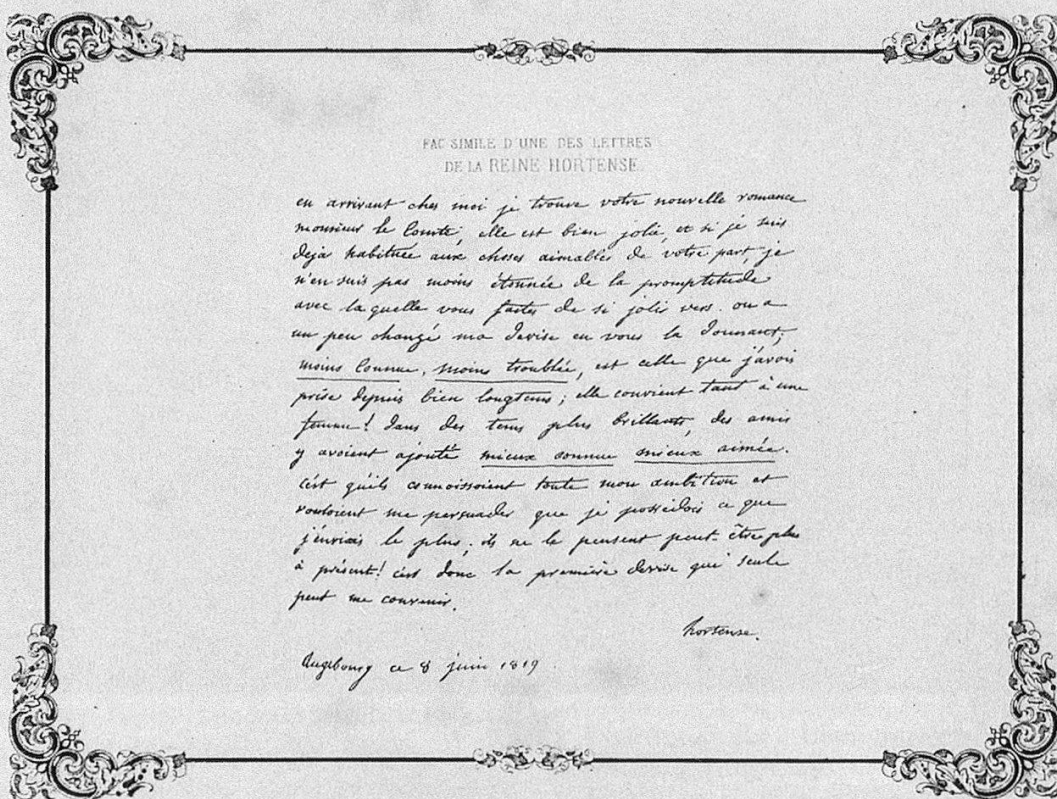 FAC SIMILE D'UNE DES LETTRES
DE LA REINE HORTENSE.
en arrivant chez moi je trouve votre nouvelle romance
monsieur le Comte, elle est bien jolie, et si je suis
deja habituée aux choses aimables de votre part, je
n'en suis pas moins étonnée de la promptitude
avec la quelle vous faites de si jolis vers. on a
un peu changé ma devise en vous la donnant;
moins connue, moins troublée, est celle que j'avois
prise depuis bien longtems; elle convient tant à une
femme! dans des tems plus brillants, des amis
y avoient ajouté mieux connue mieux aimée.
c'est qu'ils connoissoient toute mon ambition et
vouloient me persuader que je possédois ce que
j'enviais le plus; ils ne le pensent peut-être plus
à présent! c'est donc la première devise qui seule
peut me convenir.
hortense.
Augsbourg ce 8 juin 1819